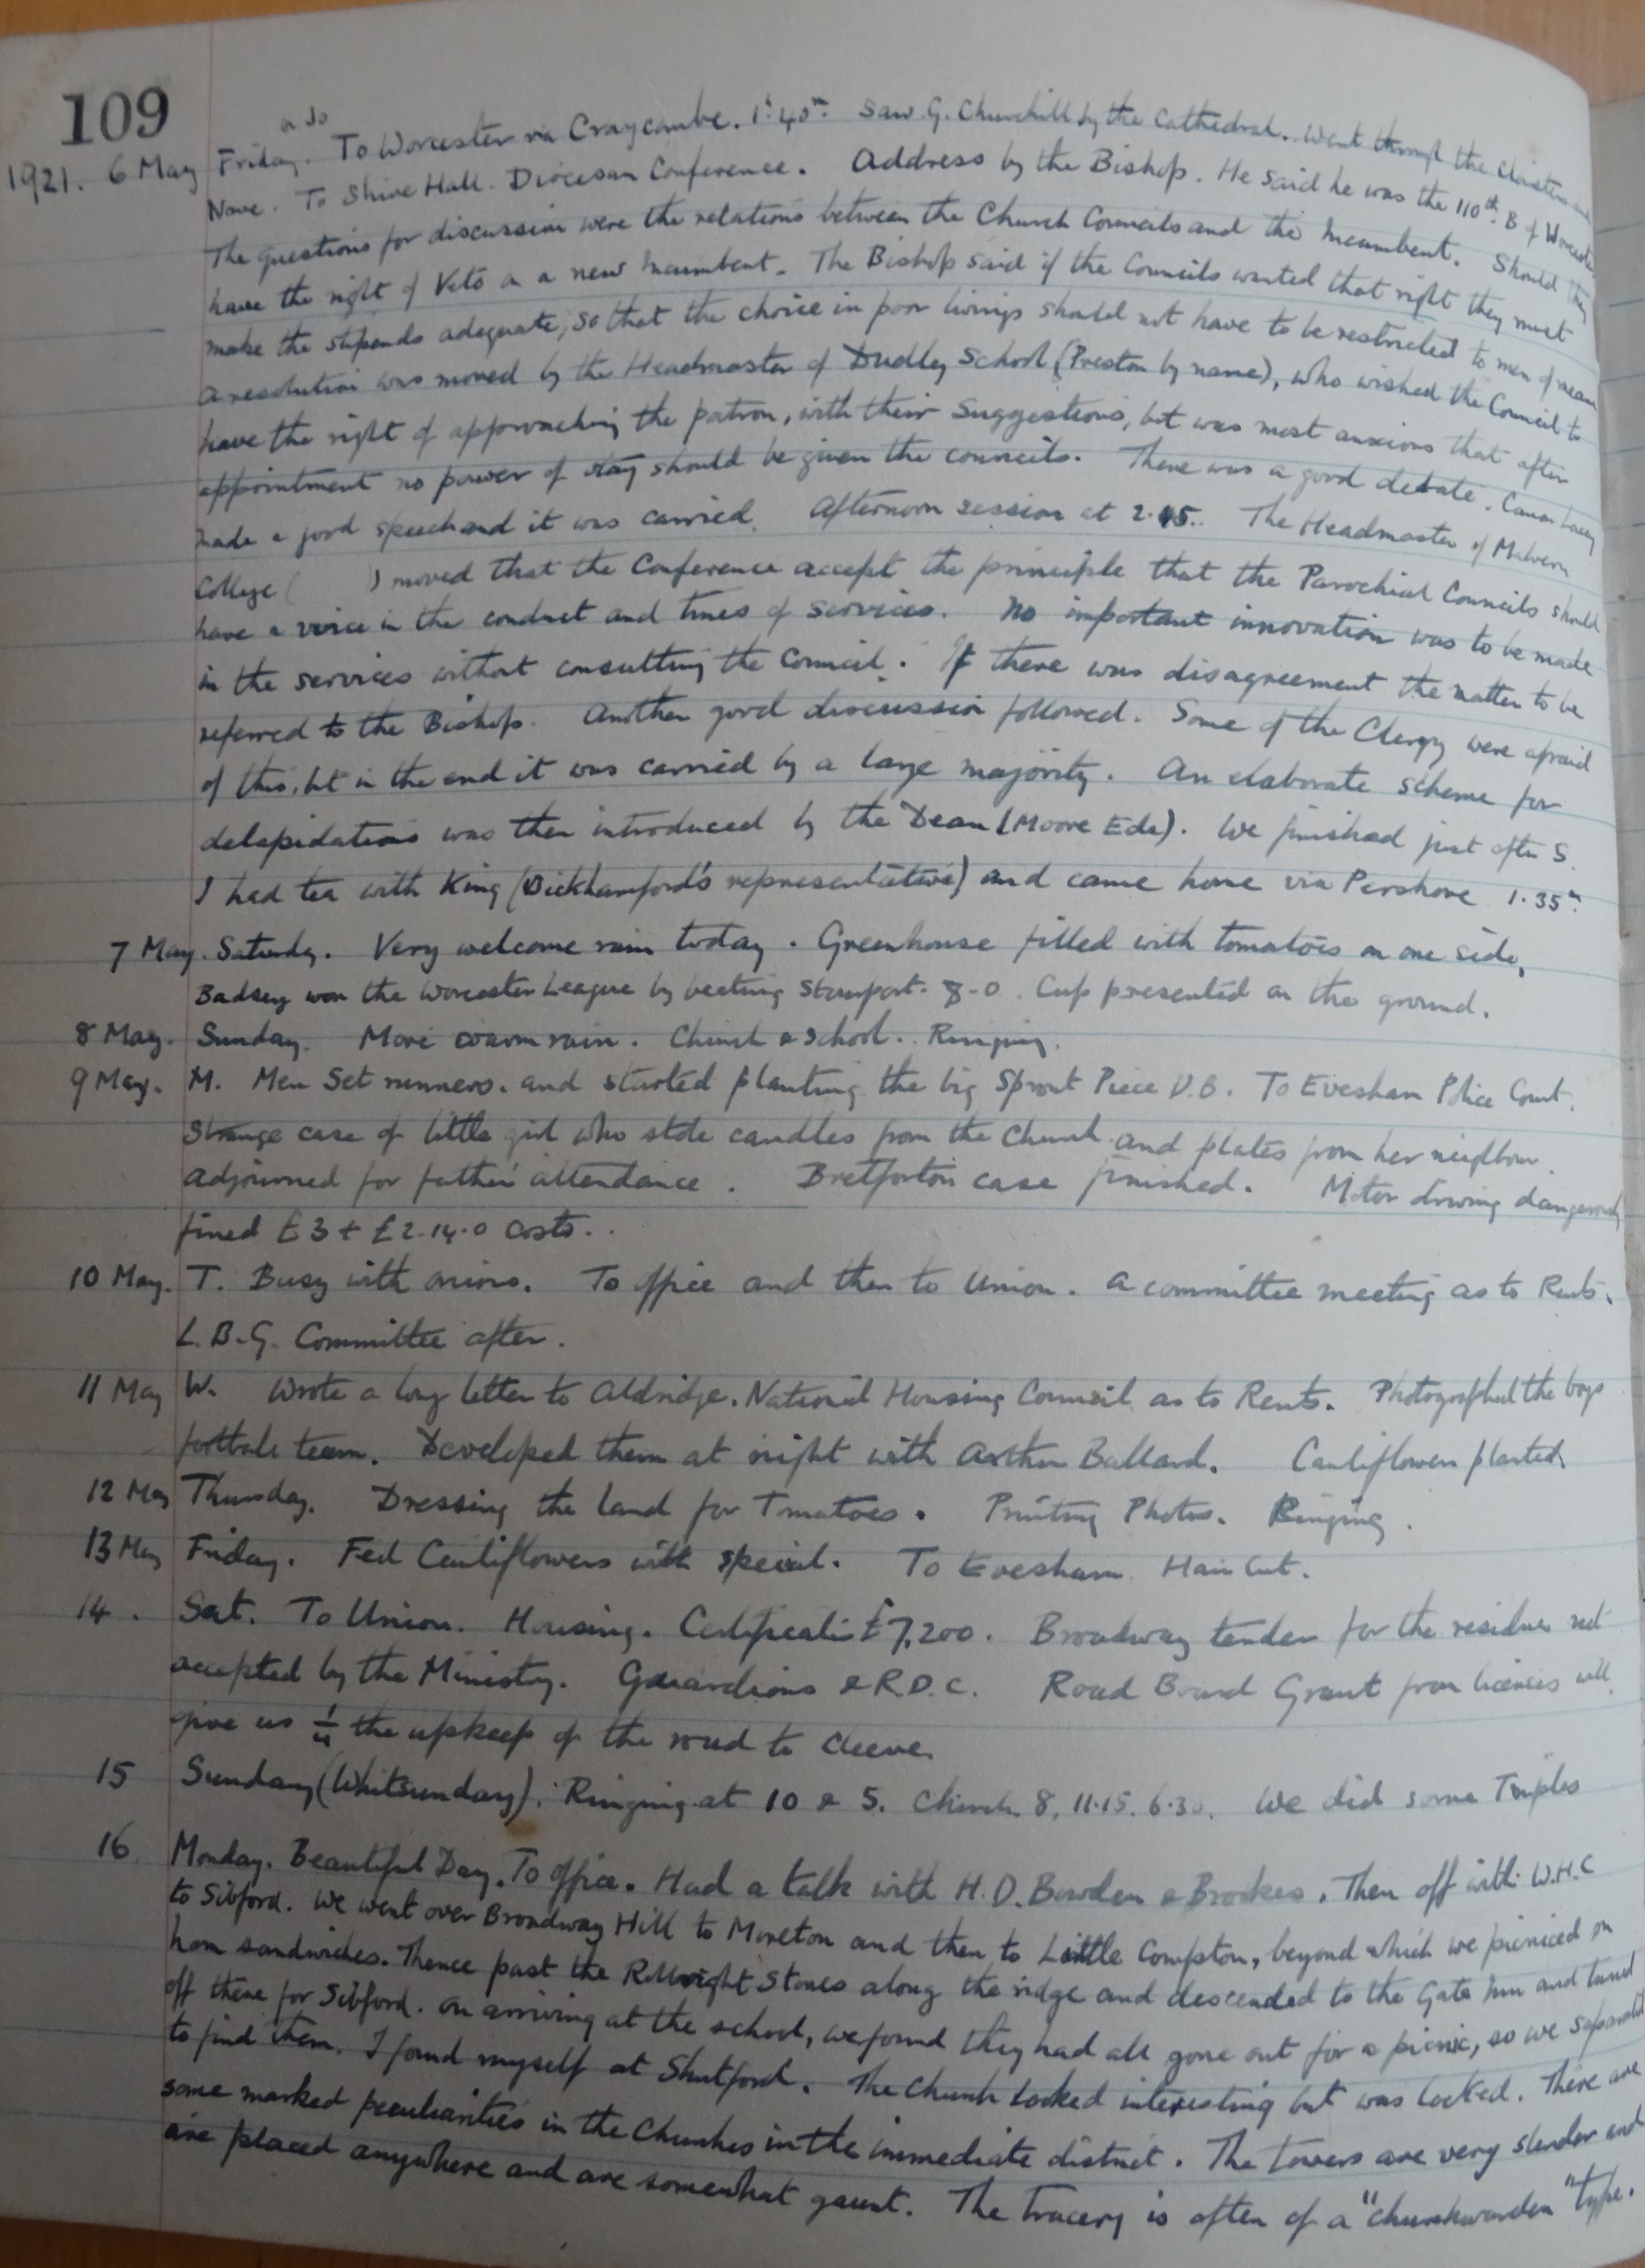 109
1921. 6 May Friday. To Worcester via Craycombe. 1h. 40m. Saw G. Churchill by the Cathedral. Went through the Cloisters and
Nave. To Shire Hall. Diocesan Conference. Address by the Bishop. He said he was the 110th. B of Worcester
The questions for discussion were the relations between the Church Councils and the Incumbent. Should they
have the right of Veto on a new Incumbent. The Bishop said if the Councils wanted that right they must
make the stipends adequate, so that the choice in poor livings should not have to be restricted to men of means
A resolution was moved by the Headmaster of Dudley School (Preston by name), who wished the Council to
have the right of approaching the patron, with their suggestions, but was most anxious that after
appointment no power of stay should be given the councils. There was a good debate. Canon Lacey
made a good speech and it was carried. Afternoon session at 2.15. The Headmaster of Malvern
College ( ) moved that the Conference accept the principle that the Parochial Councils should
have a voice in the conduct and times of services. No important innovation was to be made
in the services without consulting the Council. If there was disagreement the matter to be
referred to the Bishop. Another good discussion followed. Some of the Clergy were afraid
of this, but in the end it was carried by a large majority. An elaborate scheme for
delapidations was then introduced by the Dean (Moore Ede). We finished just after 5.
I had tea with King (Wickhamford's representative) and came home via Pershore 1.35m.
7 May. Saturday. Very welcome rain today. Greenhouse filled with tomatoes on one side,
Badsey won the Worcester League by beating Stourport. 8-0. Cup presented on the ground.
8 May. Sunday. More warm rain. Church & school. Ringing.
9 May. M. Men set runners. and started planting the big Sprout Piece D.B. To Evesham Police Court.
Strange case of little girl who stole candles from the Church and plates from her neighbour.
Adjourned for father's attendance. Bretforton case finished. Motor driving dangerously
fined £3 + £2.14.0 costs..
10 May. T. Busy with onions. To office and then to Union. A committee meeting as to Rents.
L.B.G. Committee after.
11 May W. Wrote a long letter to Aldridge. National Housing Council as to Rents. Photographed the boys
football team. Developed them at night with Arthur Ballard. Cauliflowers planted.
12 May Thursday. Dressing the land for Tomatoes. Printing Photos. Ringing.
13 May Friday. Fed Cauliflowers with special. To Evesham. Hair Cut.
14. Sat. To Union. Housing. Certificate £7,200. Broadway tender for the residue not
accepted by the Ministry. Guardians & R.D.C. Road Board Grant from licences will
give us 1/4 the upkeep of the road to Cleeve.
15 Sunday (Whitsunday). Ringing at 10 & 5. Church 8, 11.15. 6.30. We did some Triples
16 Monday. Beautiful Day. To office. Had a talk with H.D. Bowden & Brookes. Then off with W.H.C
to Sibford. We went over Broadway Hill to Moreton and then to Little Compton, beyond which we picniced on
ham sandwiches. Thence past the Rollright Stones along the ridge and descended to the Gate Inn and turned
off there for Sibford. On arriving at the school, we found they had all gone out for a picnic, so we separated
to find them. I found myself at Shutford. The Church looked interesting but was locked. There are
some marked peculiarities in the Churches in the immediate district. The towers are very slender and
are placed anywhere and are somewhat gaunt. The tracery is often of a "churchwarden" type.